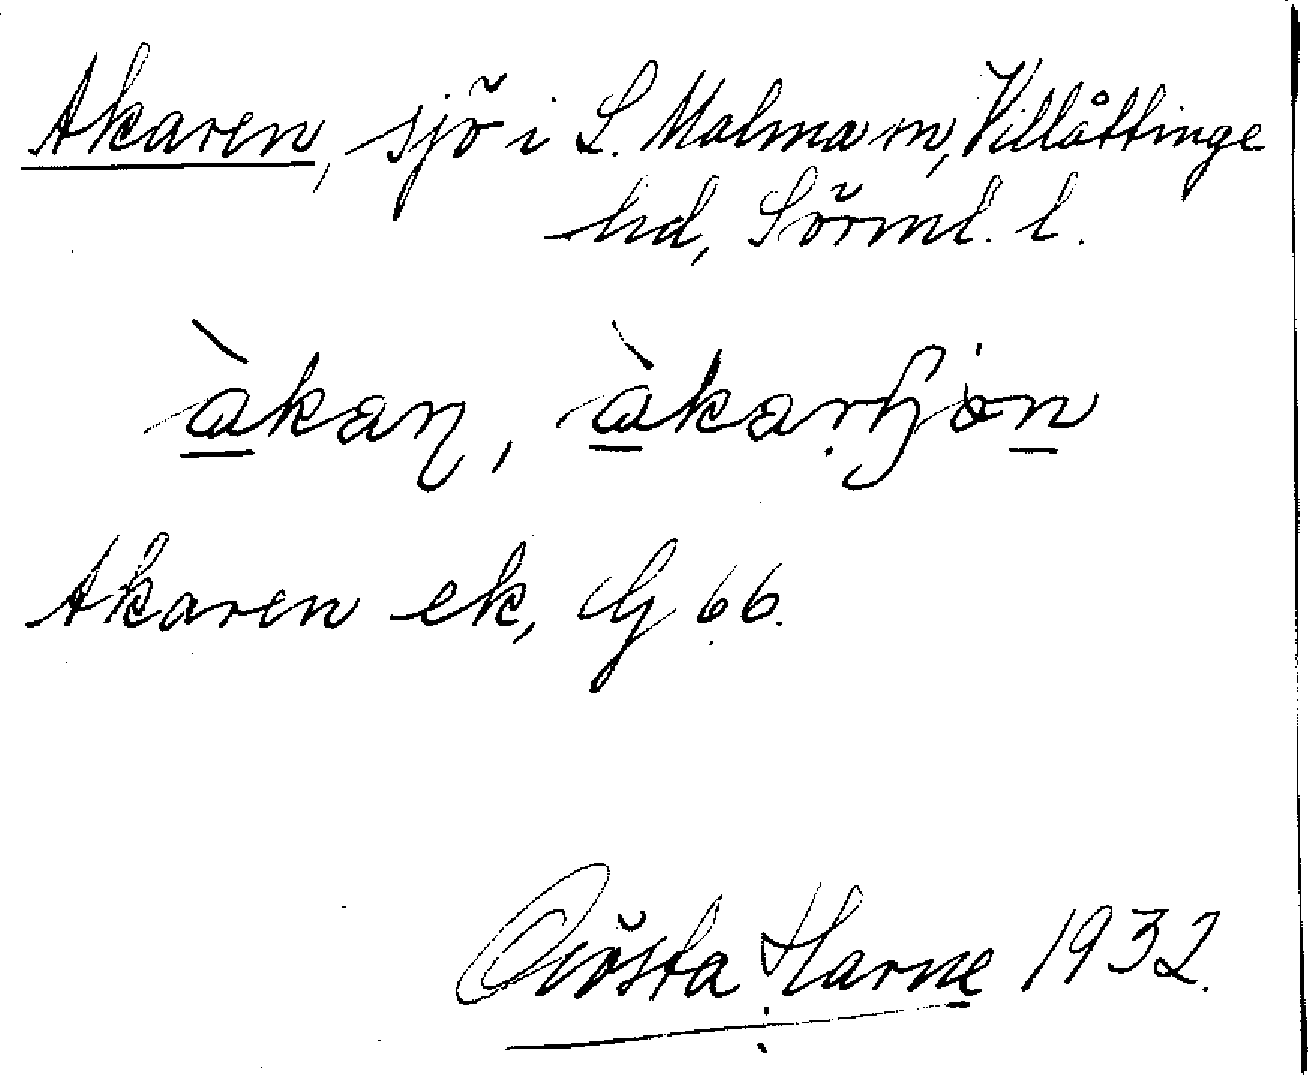 Akaren, sjö i L. Malma sn, Villåttinge
hd, Sörml. l.
àkaɳ, àkarɧön
Akaren ek, G 66.
Gösta Harne 1932.